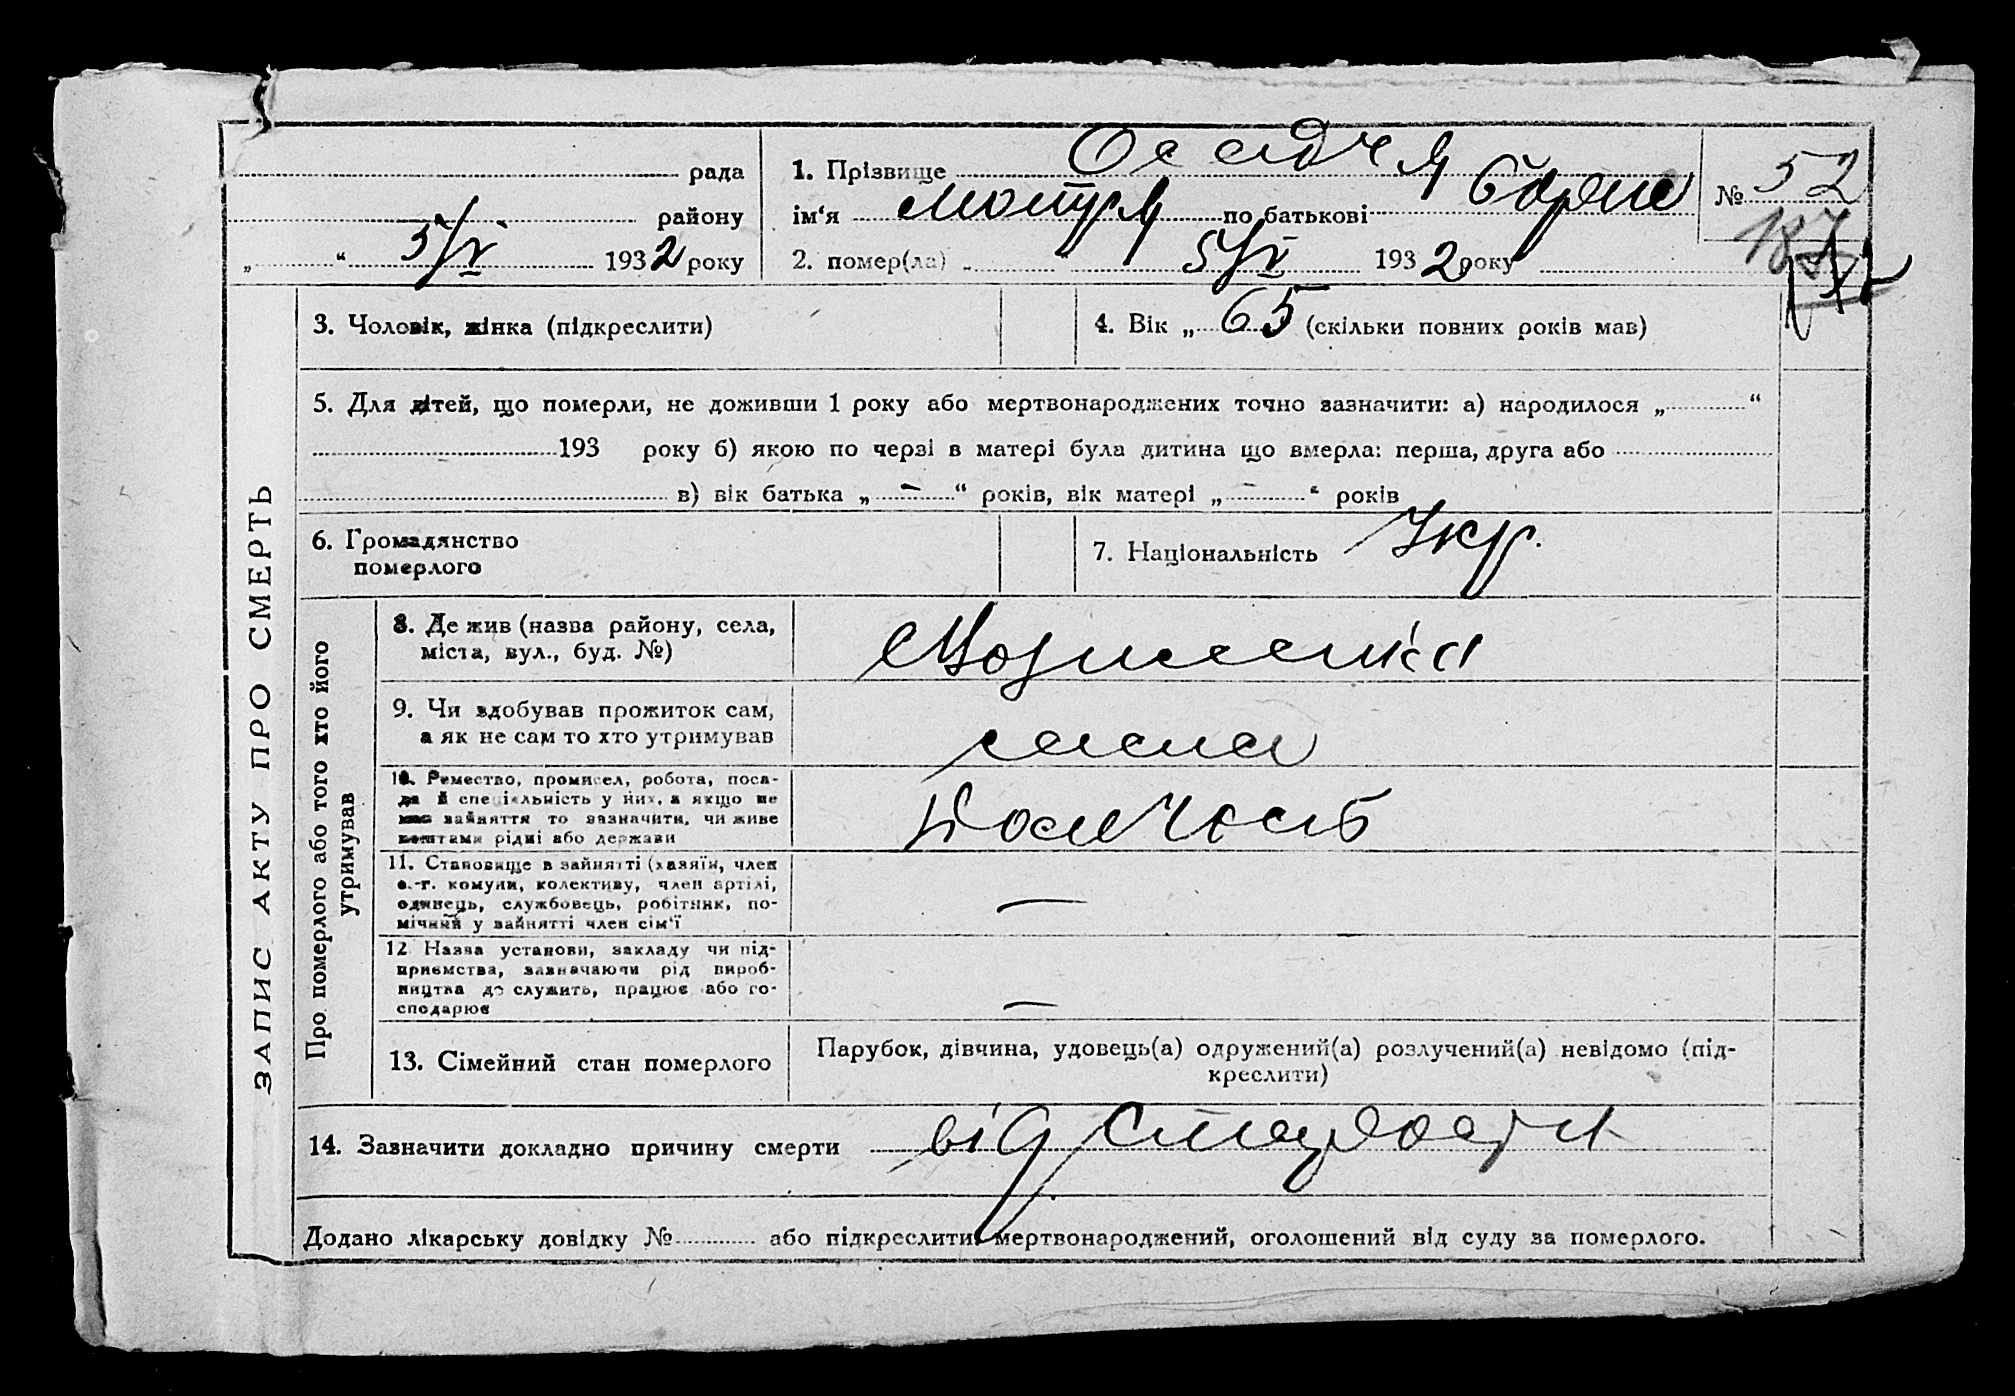 рада
району
„ “ 5/V 1932 року
1. Прізвище Осадча
ім‘я Мотря по батькові
2. помер(ла) 5/V 1932 року
№ 52
ЗАПИС АКТУ ПРО СМЕРТЬ
3. Чоловік, жінка (підкреслити)
4. Вік „ 65 (скільки повних років мав)
5. Для дітей, що померли, не доживши 1 року або мертвонароджених точно зазначити: а) народилося „ “
193 року б) якою по черзі в матері була дитина що вмерла: перша, друга або
в) вік батька „ – “ років, вік матері „ – “ років
6. Громадянство
померлого
7. Національність Укр.
Про померлого або того хто його
утримував
8. Де жив (назва району, села,
міста, вул., буд. №)
9. Чи здобував прожиток сам,
а як не сам то хто утримував
сама
10. Ремество, промисел, робота, поса-
да й спеціяльність у них, а якщо не
мав зайняття то зазначити, чи живе
коштами рідні або держави
11. Становище в зайнятті (хазяїн, член
с.-г. комуни, колективу, член артілі,
одинець, службовець, робітник, по-
мічний у зайнятті член сім‘ї
—
12 Назва установи, закладу чи під-
приємства, зазначаючи рід вироб-
ництва де служить, працює або го-
сподарює
—
13. Сімейний стан померлого
Парубок, дівчина, удовець(а) одружений(а) розлучений(а) невідомо (під-
креслити)
14. Зазначити докладно причину смерти від старости
Додано лікарську довідку № або підкреслити: мертвонароджений, оголошений від суду за померлого.